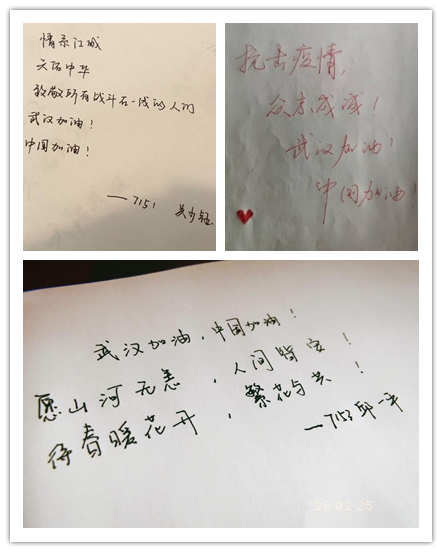 情系江城
大爱中华
致敬所有战斗在一线的人们
武汉加油！
中国加油！
——7151
抗击疫情，
众志成城！
武汉加油！
中国加油！
武汉加油，中国加油！
愿山河无恙，人间皆安！
待春暖花开，繁花与共！
——7153邱一平
2020 02 25